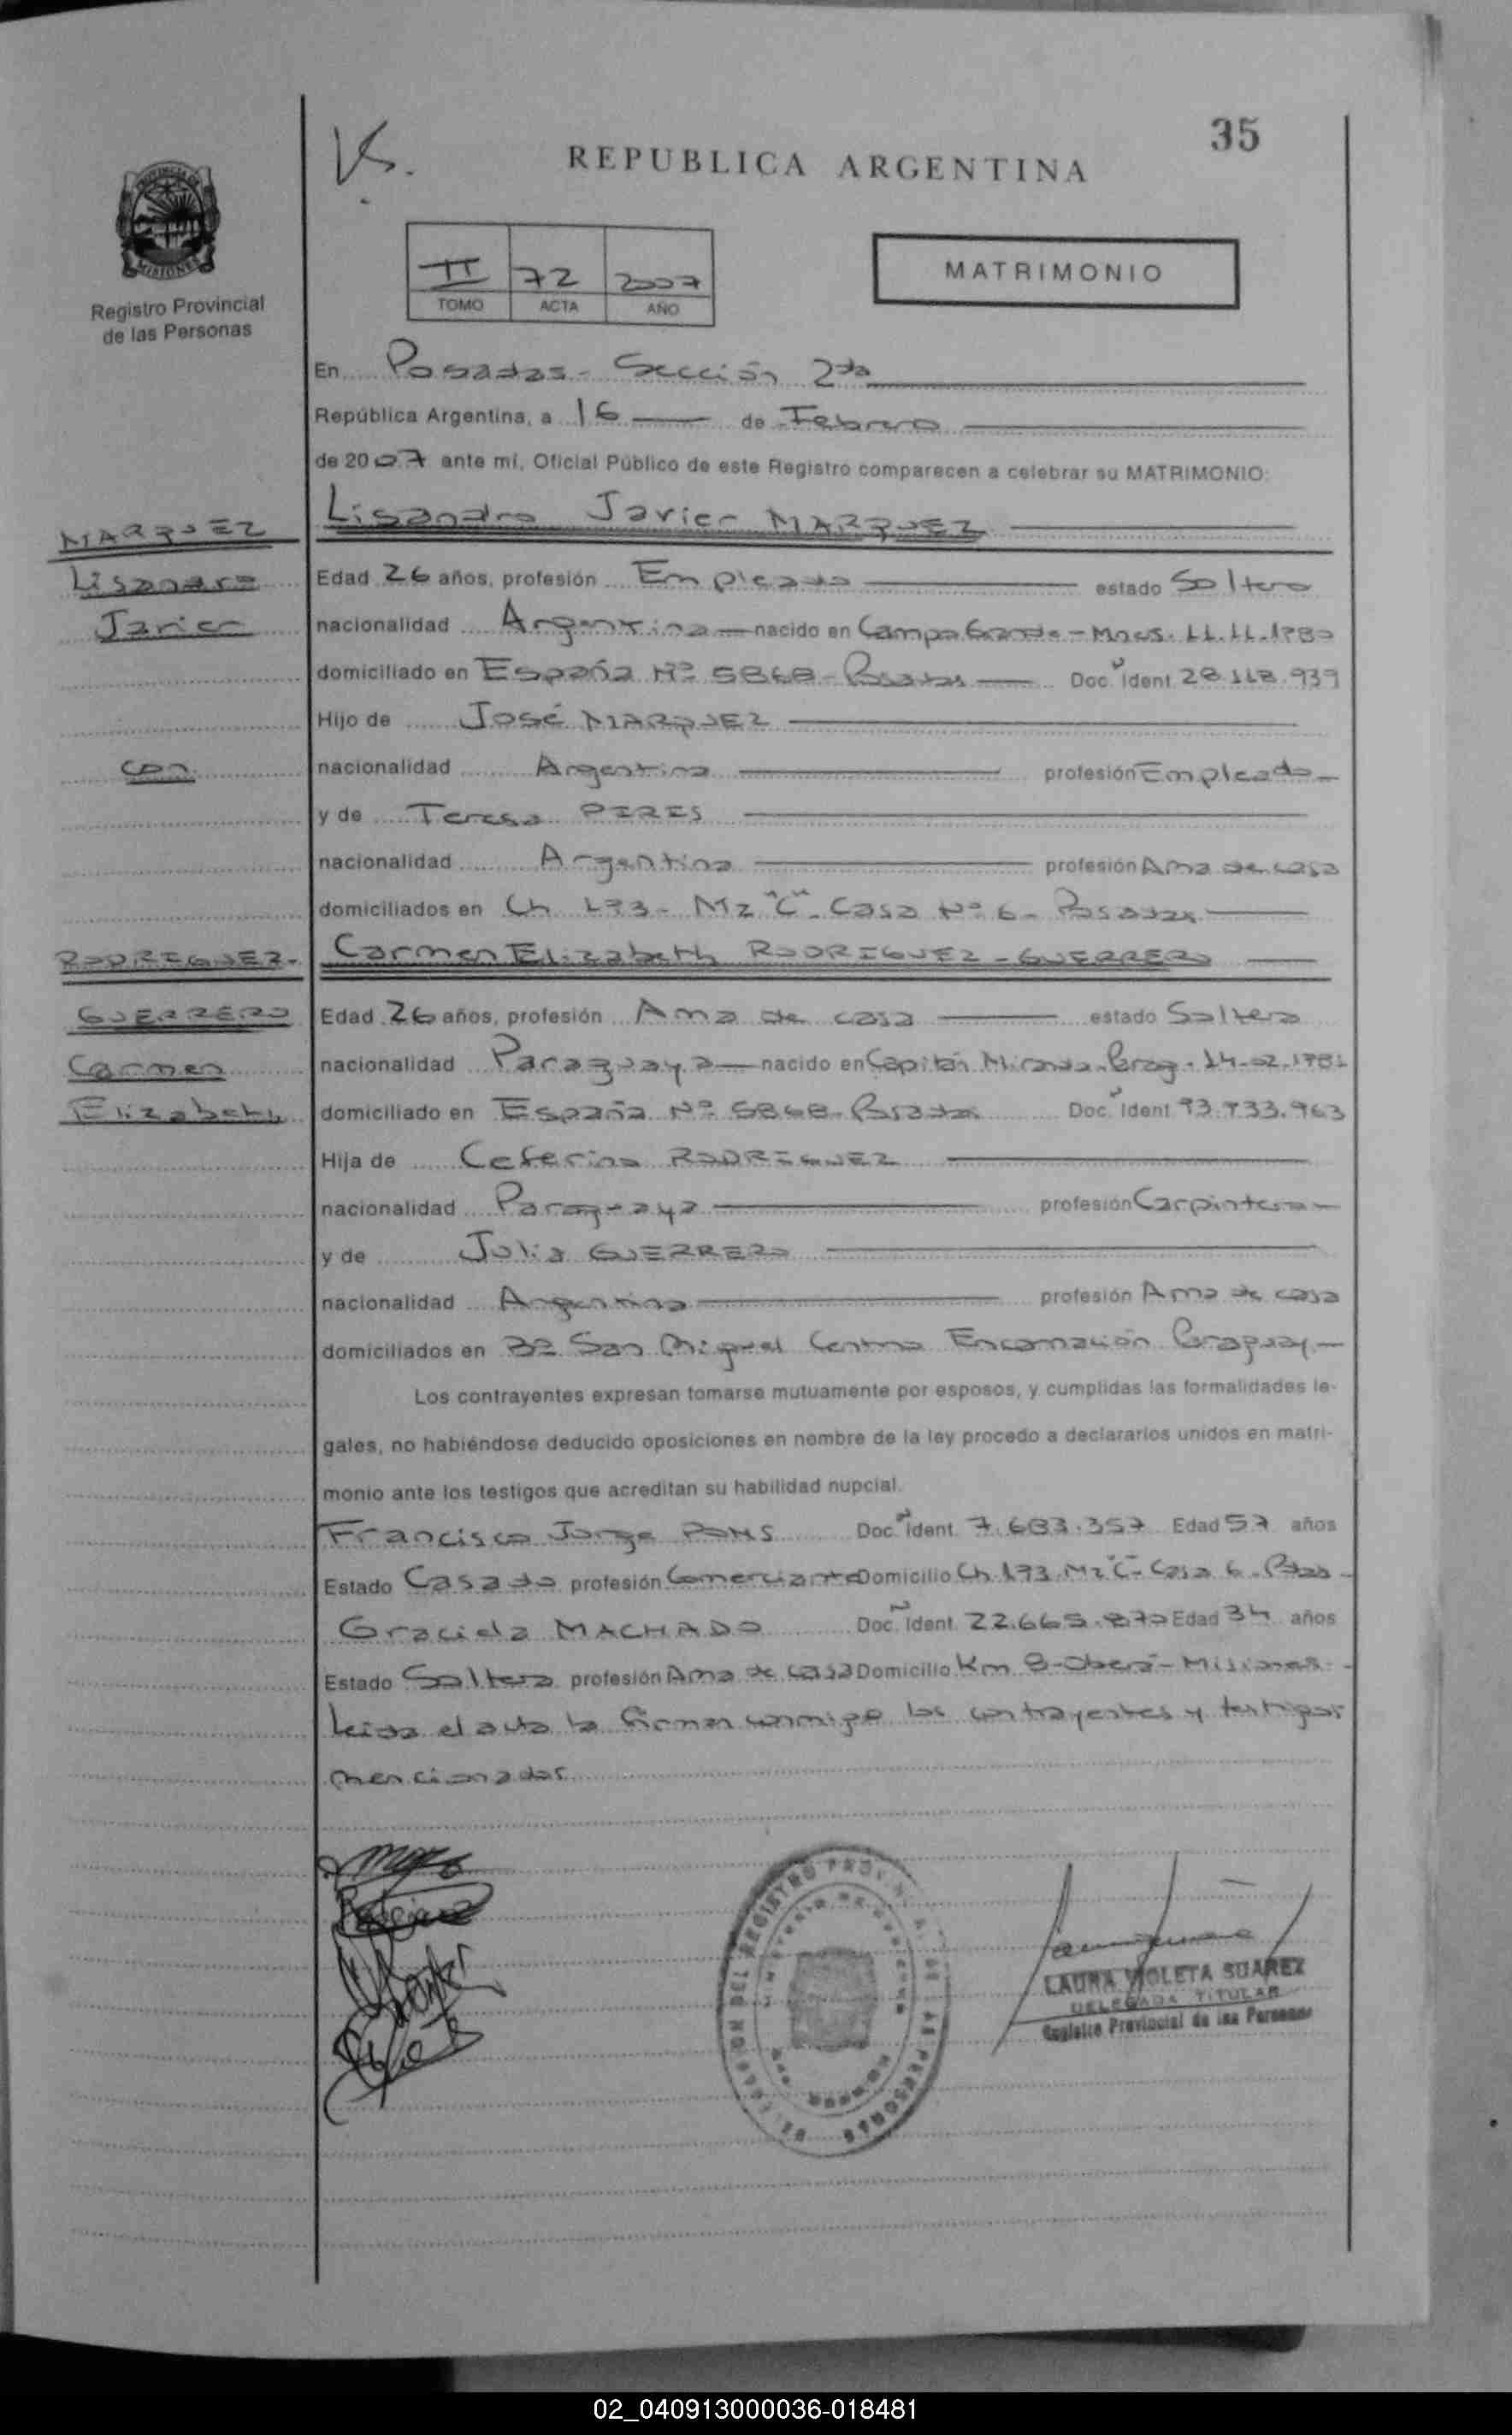 35
REPUBLICA ARGENTINA
PROVINCIA DE
MISIONES
Registro Provincial
de las Personas
II 72 2007
TOMO ACTA AÑO
MATRIMONIO
En Posadas - Sección 2da
República Argentina, a 16 de Febrero
de 2007 ante mí, Oficial Público de este Registro comparecen a celebrar su MATRIMONIO:
MARQUEZ
Lisandro
Javier
con
RODRIGUEZ-
GUERRERO
Carmen
Elizabeth
Lisandro Javier MARQUEZ
Edad 26 años, profesión Empleado estado Soltero
nacionalidad Argentina nacido en Campo Grande - Mnes. 11.11.1980
domiciliado en España Nº 5868 - Posadas Doc. Ident. 28.118.939
Hijo de José MARQUEZ
nacionalidad Argentina profesión Empleado
y de Teresa PIRES
nacionalidad Argentina profesión Ama de casa
domiciliados en Ch 173 - Mz "C" - Casa Nº 6 - Posadas
Carmen Elizabeth RODRIGUEZ - GUERRERO
Edad 26 años, profesión Ama de casa estado Soltera
nacionalidad Paraguaya nacido en Capitán Miranda - Parag. 14-02.1981
domiciliado en España Nº 5868 - Posadas Doc. Ident. 93.933.963
Hija de Ceferino RODRIGUEZ
nacionalidad Paraguaya profesión Carpintero
y de Julia GUERRERO
nacionalidad Argentina profesión Ama de casa
domiciliados en Bº San Miguel Centro Encarnación Paraguay.
Los contrayentes expresan tomarse mutuamente por esposos, y cumplidas las formalidades le-
gales, no habiéndose deducido oposiciones en nombre de la ley procedo a declararlos unidos en matri-
monio ante los testigos que acreditan su habilidad nupcial.
Francisco Jorge PONS Doc. Ident. 7.683.357 Edad 57 años
Estado Casado profesión Comerciante Domicilio Ch 173 Mz "C" - Casa 6 - Pdas
Graciela MACHADO Doc. Ident. 22.665.870 Edad 34 años
Estado Soltera profesión Ama de casa Domicilio Km 8 - Oberá - Misiones -
Leída el acta la firman conmigo los contrayentes y testigos
mencionados
LAURA VIOLETA SUAREZ
DELEGADA TITULAR
Registro Provincial de las Personas
02_040913000036-018481